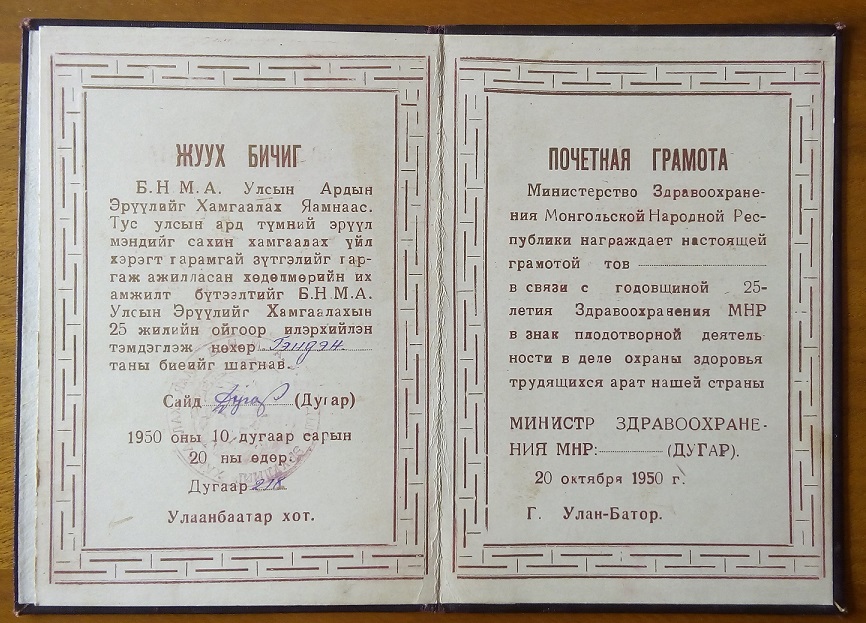 ЖУУХ БИЧИГ
Б.Н М.А. Улсын Ардын
Эрүүлийг Хамгаалах Яамнаас.
Тус улсын ард түмний эрүүл
мэндийг сахин хамгаалах үйл
хэрэгт гарамгай зүтгэлийг гар-
гаж ажилласан хөдөлмөрийн их
амжилт бүтээлтийг Б.Н.М.А.
Улсын Эрүүлийг Хамгаалахын
25 жилийн ойгоор илэрхийлэн
тэмдэглэж нөхөр Гэндэн
таны биеийг шагнав.
Сайд Дугар (Дугар)
1950 оны 10 дугаар сагын
20 ны өдөр.
Дугаар
Улаанбаатар хот.
ПОЧЕТНАЯ ГРАМОТА
Министерство Здравоохране-
ния Монгольской Народной Рес-
публики награждает настоящей
грамотой тов
в связи с годовщиной 25-
летия Здравоохранения МНР
в знак плодотворной деятель-
ности в деле охраны здоровья
трудящихся арат нашей страны
МИНИСТР ЗДРАВООХРАНЕ-
НИЯ МНР: (ДУГАР).
20 октября 1950 г.
Г. Улан-Батор.